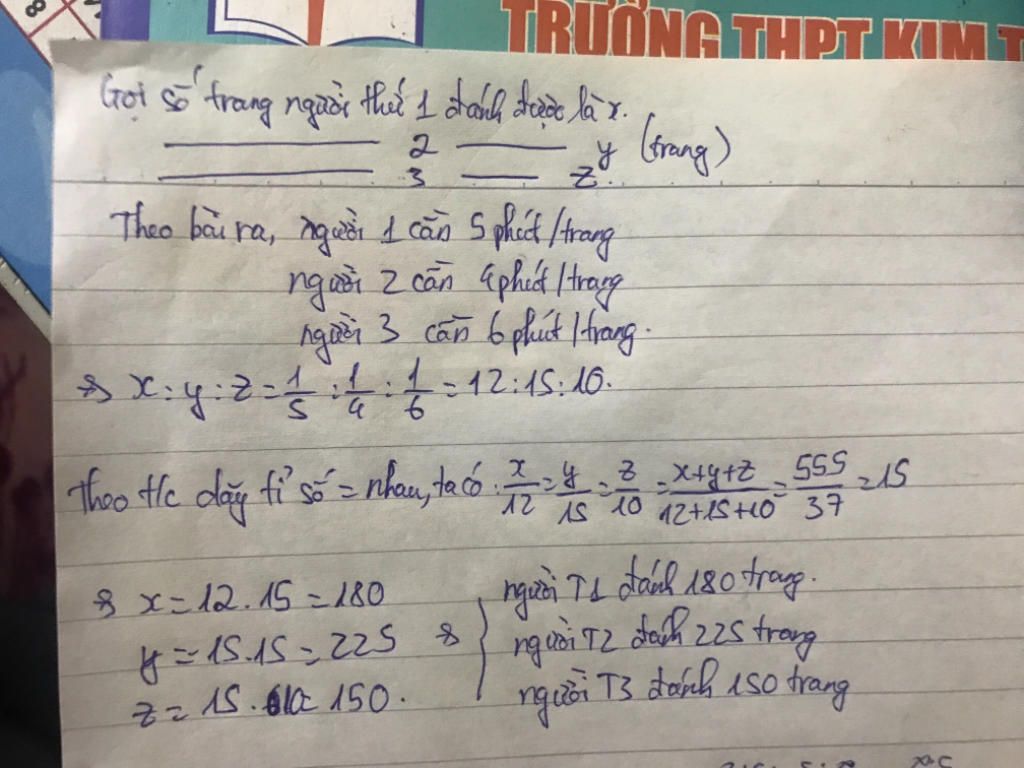 TRƯỜNG THPT KIM T
Gọi số trang người thứ 1 đánh được là x.
—— 2 —— y (trang)
—— 3 —— z.
Theo bài ra, người 1 cần 5 phút/trang
người 2 cần 4 phút/trang
người 3 cần 6 phút/trang.
=> x:y:z = 1/5 : 1/4 : 1/6 = 12:15:10.
Theo t/c dãy tỉ số = nhau, ta có: x/12 = y/15 = z/10 = x+y+z/12+15+10 = 555/37 = 15
=> x = 12.15 = 180
y = 15.15 = 225 =>
z = 15.10 = 150.
người T1 đánh 180 trang.
người T2 đánh 225 trang
người T3 đánh 150 trang